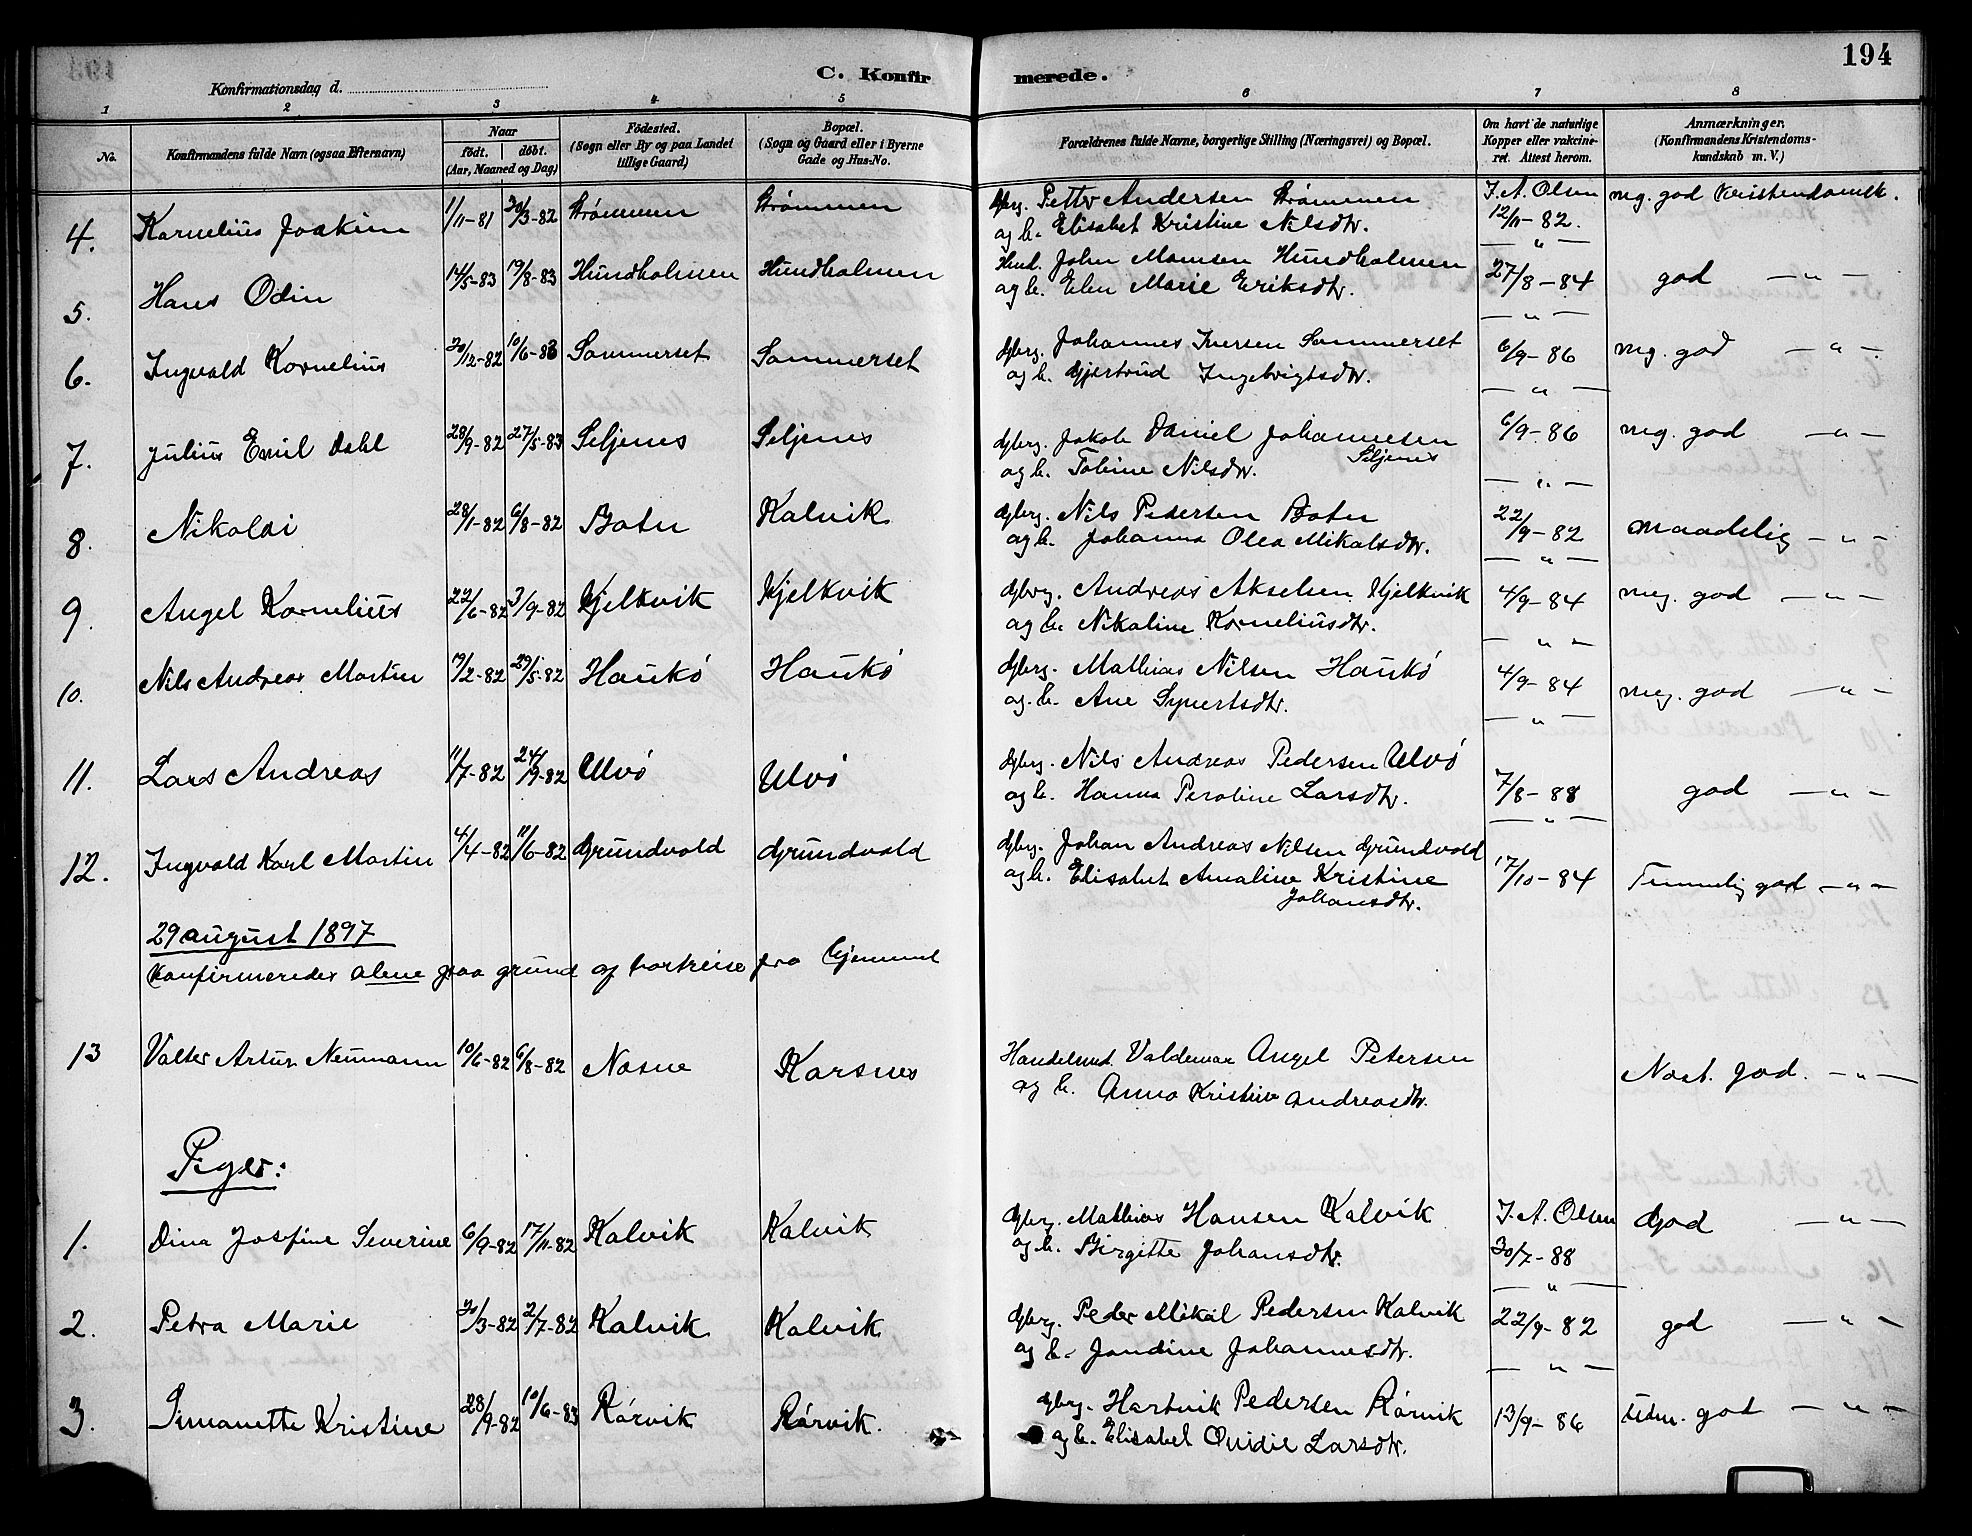 194
C. Konfirmerede.
Konfirmationsdag d.
1 2 3 4 5 6 7 8
No.
Konfirmandens fulde Navn (ogsaa Efternavn)
Naar
födt. döbt.
(Aar, Maaned og Dag)
Födested.
(Sogn eller By og paa Landet
tillige Gaard)
Bopæl.
(Sogn og Gaard eller i Byerne
Gade og Hus-No.
Forældrenes fulde Navne, borgerlige Stilling (Næringsvei) og Bopæl.
Om havt de naturlige
Kopper eller vakcine-
ret. Attest herom.
Anmærkninger,
(Konfirmandens Kristendoms-
kundskab m. V.)
4. Kornelius Joakim 1/11-81 20/3-82 Strømmen Strømmen Gbrg. Petter Andersen Strømmen J. A. Olsen meg. god Kristendomsk.
og h. Elisabet Kristine Nilsdtr. 12/11-82.
5. Hans Odin 14/5-83 19/8-83 Hundholmen Hundholmen Hmd. Johan Monsen Hundholmen — " — god — " —
og h. Elen Marie Eriksdtr. 27/8-84
6. Ingvald Kornelius 20/12-82 10/6-83 Sommerset Sommerset Gbrg. Johannes Iversen Sommerset — " — meg. god — " —
og h. Gjertrud Ingebrigtsdtr. 6/9-86
7. Julius Emil Dahl 28/9-82 27/5-83 Seljenes Seljenes Gbrg. Jakob Daniel Johannesen — " — meg. god — " —
Seljenes 6/9-86
og h. Tobine Nilsdtr.
8. Nikolai 28/1-82 6/8-82 Botn Kalvik Gbrg. Nils Pedersen Botn — " — maadelig — " —
og h. Johanna Olea Mikalsdtr. 22/9-82
9. Angel Kornelius 22/6-82 3/9-82 Kjelkvik Kjelkvik Gbrg. Andreas Akselsen Kjelkvik — " — meg. god — " —
og h. Nikoline Korneliusdtr. 4/9-84
10. Nils Andreas Martin 19/2-82 29/5-82 Haukö Haukö Gbrg. Mathias Nilsen Haukö — " — meg. god — " —
og. h. Ane Sypertsdtr. 4/9-84
11. Lars Andreas 11/7-82 24/9-82 Ulvö Ulvö Gbrg. Nils Andreas Pedersen Ulvö — " — god — " —
og h. Hanna Peroline Larsdtr. 7/8-88
12. Ingvald Karl Martin 4/4-82 11/6-82 Grundvold Grundvold Gbrg. Johan Andreas Nilsen Grundvold — " — Temmelig god — " —
og h. Elisabet Amaline Kristine 17/10-84
Johansdtr.
29 august 1897
Konfirmeredes alene paa grund af bortreise fra hjemmet
13 Valter Artur Neumann 10/6-82 6/8-82 Nosne Korsnes Handelsmd. Valdemar Angel Petersen Nost. god. — " —
og h. Anna Kristine Andreasdtr.
Piger:
1. Dina Josefine Severine 6/9-82 17/11-82 Kalvik Kalvik Gbrg. Mathias Hansen Kalvik J. A. Olsen God — " —
og h. Birgitte Johansdtr. 30/7-88
2. Petra Marie 20/3-82 2/7-82 Kalvik Kalvik Gbrg. Peder Mikal Pedersen Kalvik — " — god — " —
og h. Jondine Johannesdtr. 22/9-82
3. Simonette Kristine 28/9-82 10/6-83 Rörvik Rörvik. Gbrg. Hartvik Pedersen Rörvik — " — Udm. god — " —
og h. Elisabet Ovidie Larsdtr. 13/9-86